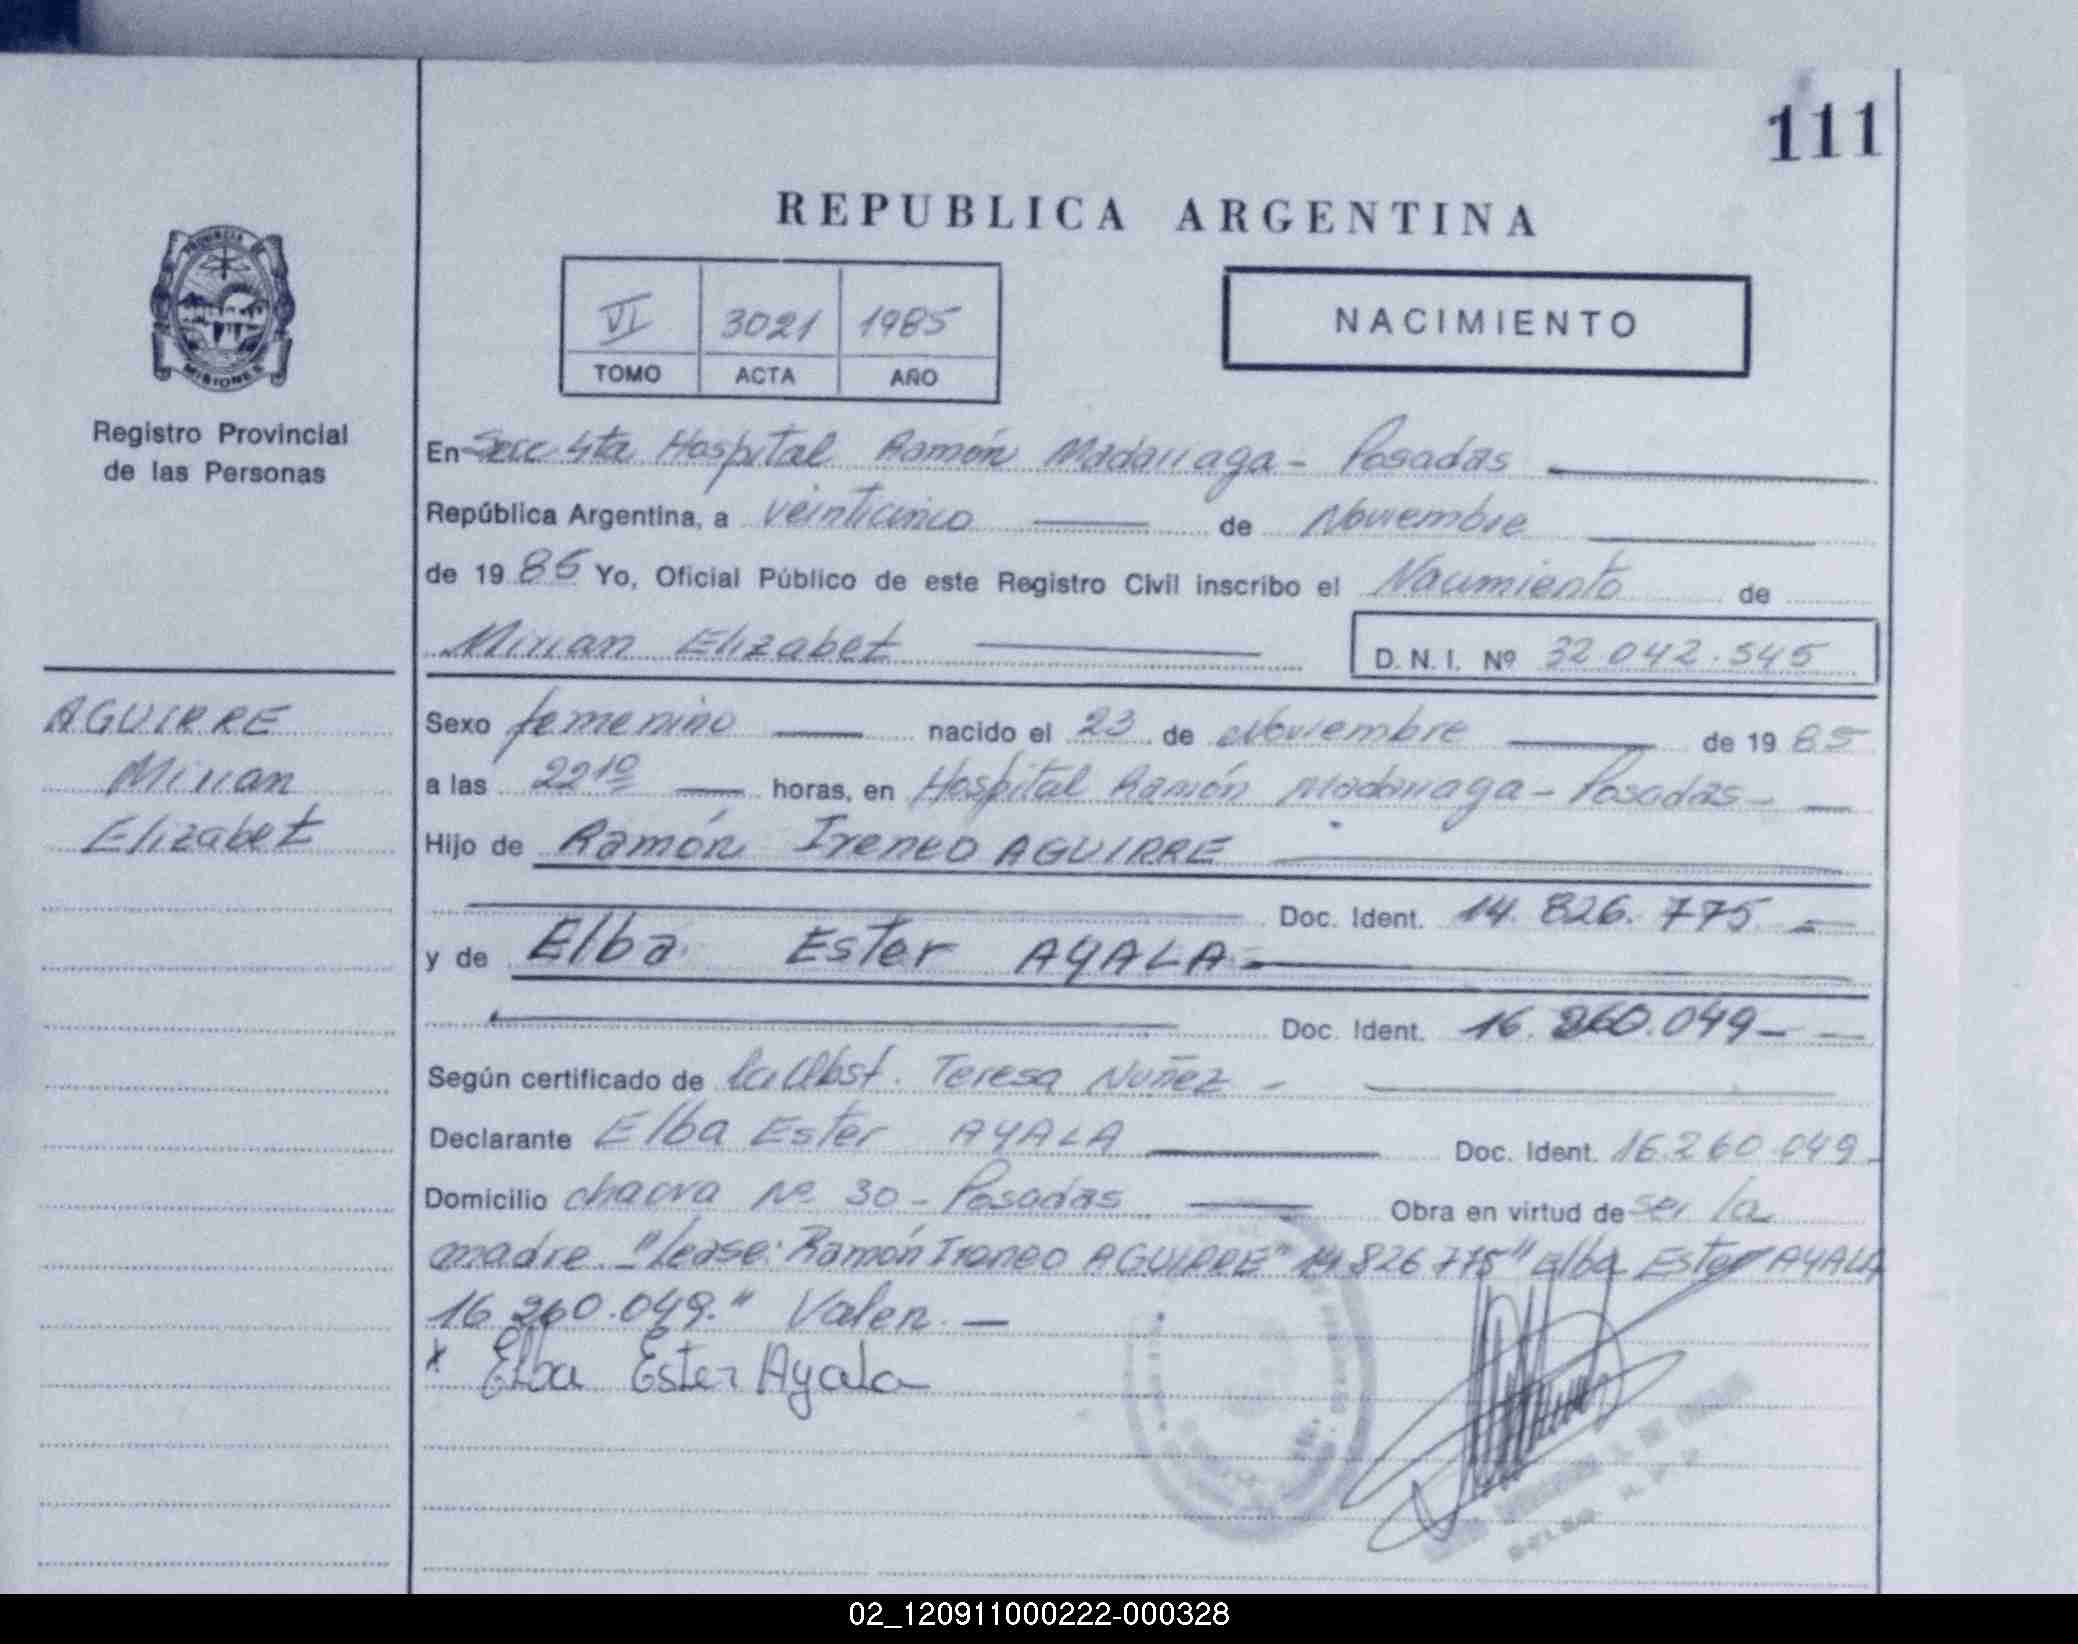 111
REPUBLICA ARGENTINA
PROVINCIA DE
MISIONES
Registro Provincial
de las Personas
VI 3021 1985
TOMO ACTA AÑO
NACIMIENTO
En Secc 4ta Hospital Ramón Madariaga - Posadas
República Argentina, a veinticinco de Noviembre
de 19 85 Yo, Oficial Público de este Registro Civil inscribo el Nacimiento de
Mirian Elizabet D. N. I. Nº 32.042.545
AGUIRRE
Mirian
Elizabet
Sexo femenino nacido el 23 de Noviembre de 19 85
a las 22 10 horas, en Hospital Ramón Madariaga - Posadas -
Hijo de Ramón Ireneo AGUIRRE
Doc. Ident. 14.826.775
y de Elba Ester AYALA
Doc. Ident. 16.260.049
Según certificado de la Obst. Teresa Nuñez -
Declarante Elba Ester AYALA Doc. Ident. 16.260.049
Domicilio chacra Nº 30 - Posadas Obra en virtud de ser la
madre. - "lease: Ramón Ireneo AGUIRRE" 14.826.775" Elba Ester AYALA
16.260.049." Valen. -
x Elba Ester Ayala
02_120911000222-000328